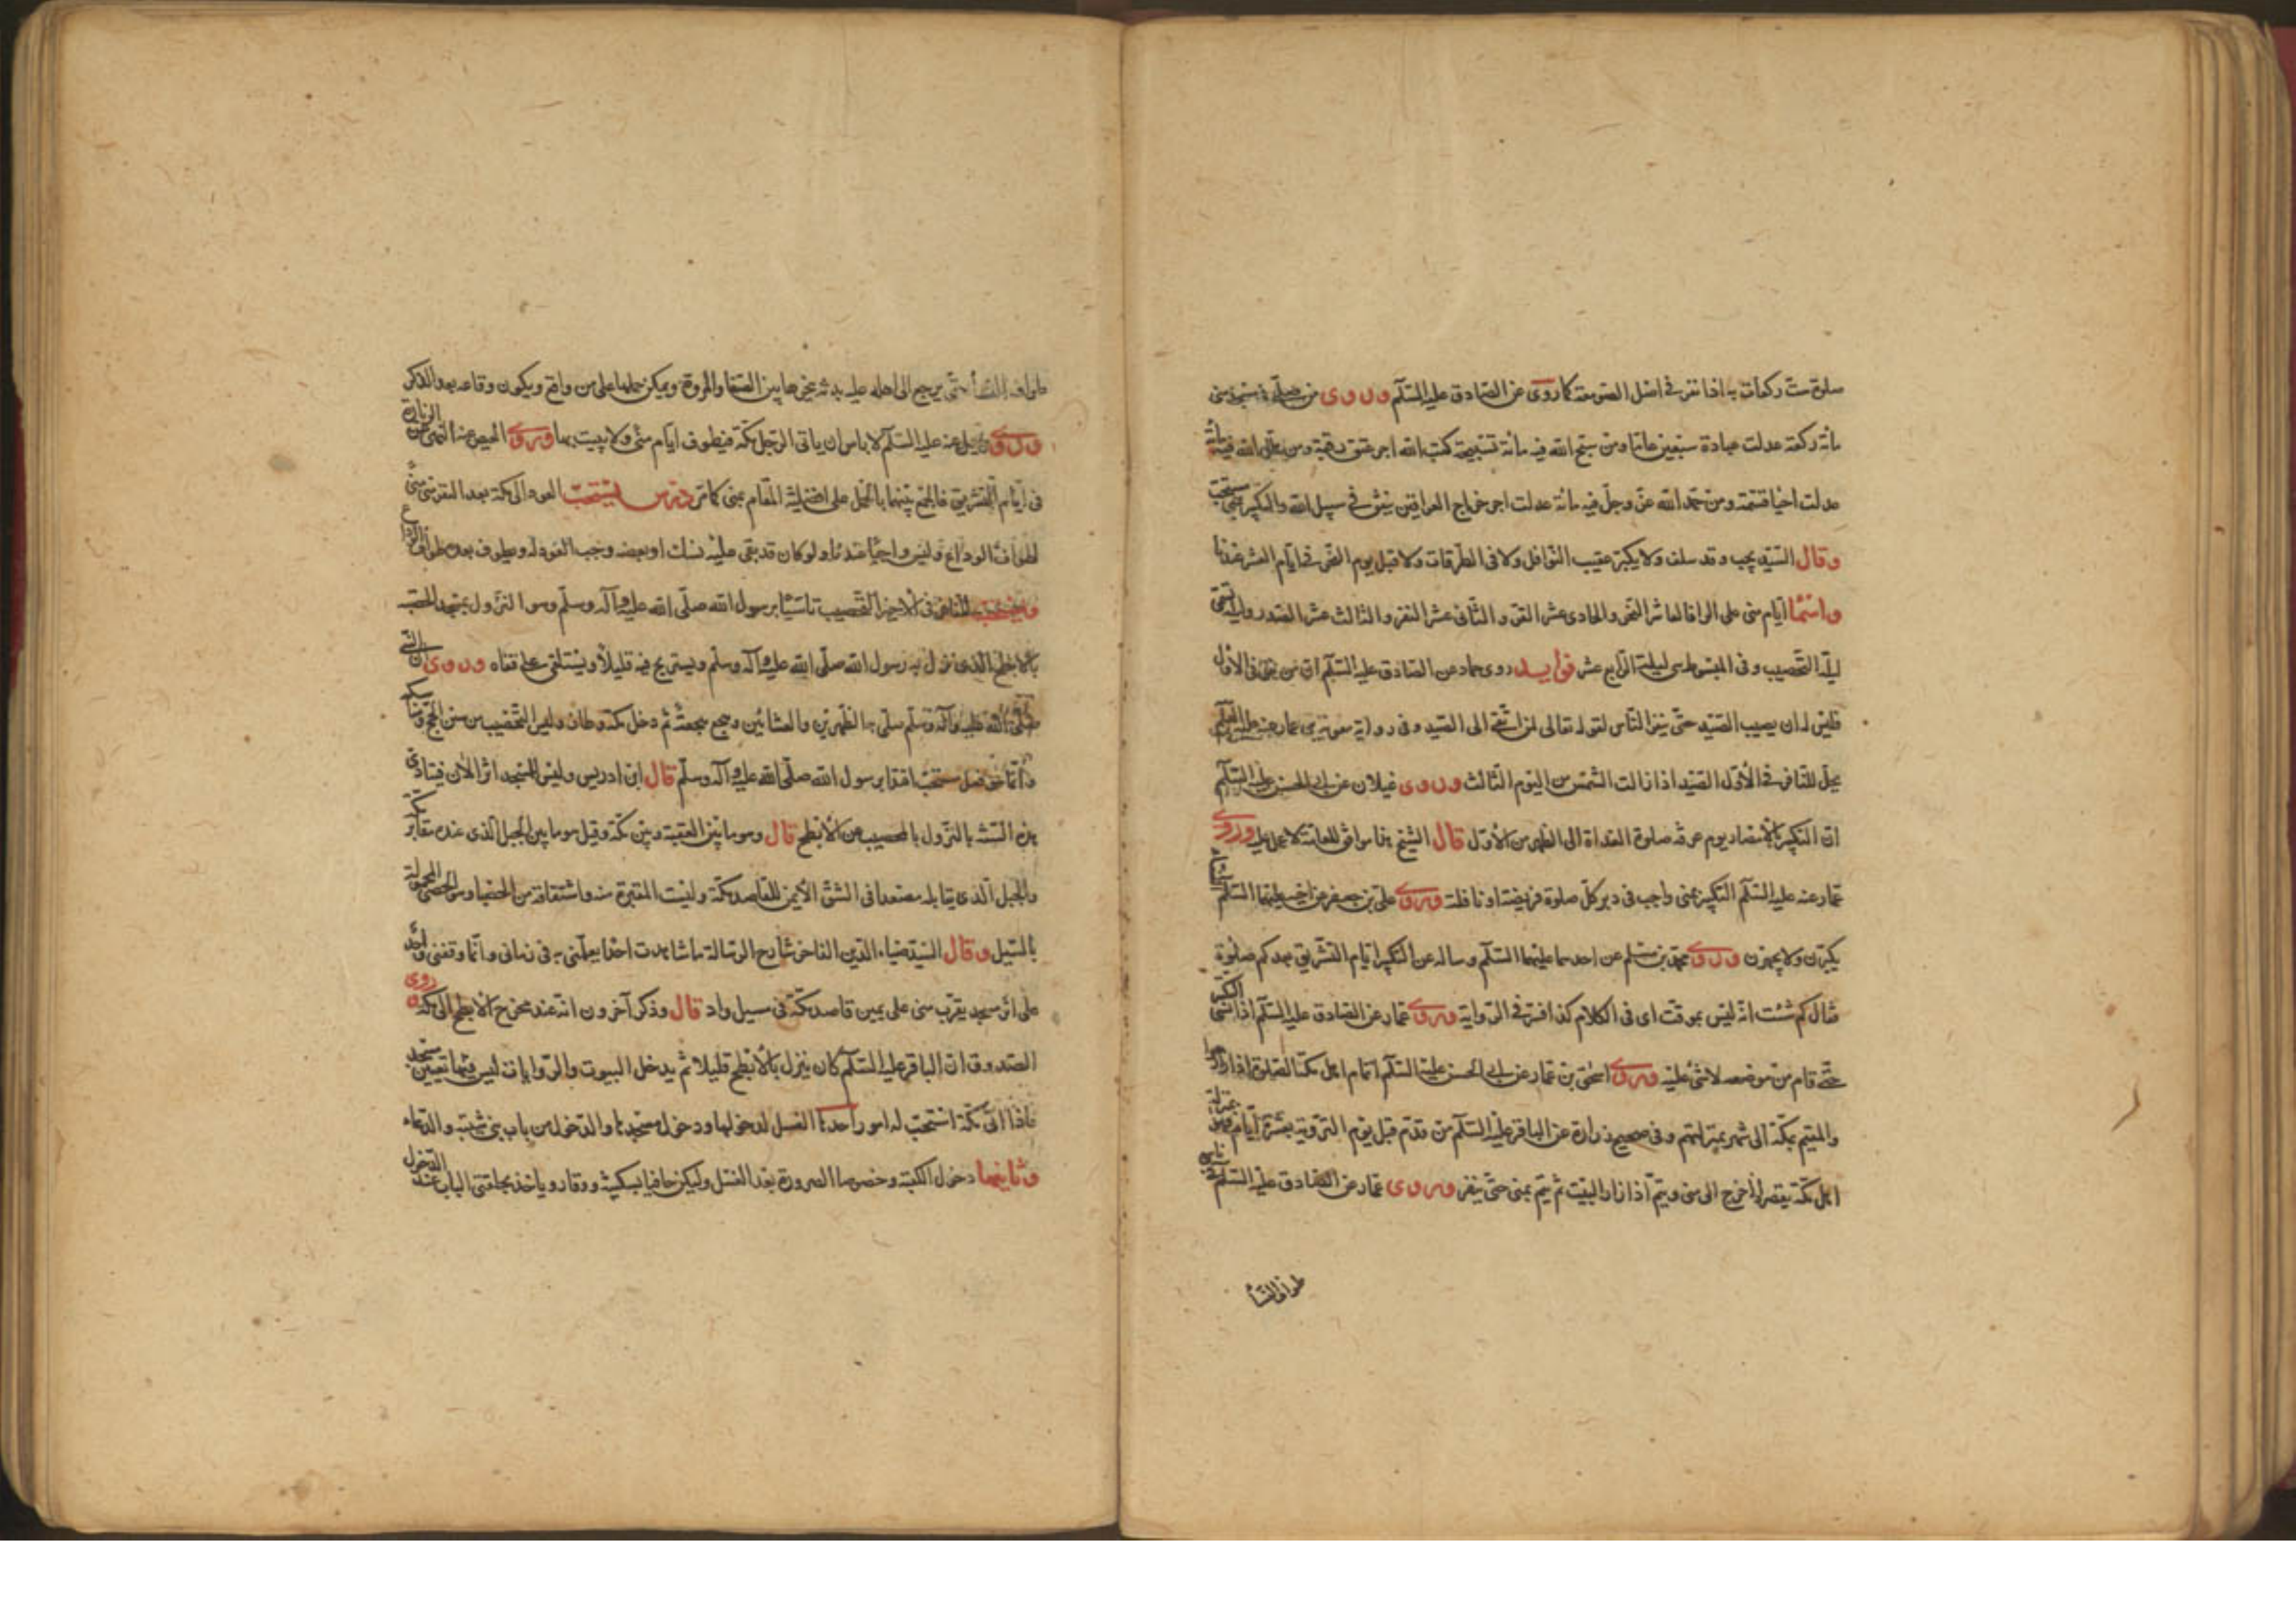 صلوة ست ركعات به اذا نفر في اصل الصومعة كما روى عن الصادق عليه السلم وروى من صلى في مسجد منى
مائة ركعة عدلت عبادة سبعين عاما ومن سبح الله فيه مائة تسبيحة كتب الله اجر عتق رقبة ومن هلل الله فيه مائة
عدلت احيا نسمة ومن حمد الله عز وجل فيه مائة عدلت اجر خراج العراقين ينفق في سبيل الله والتكبير بمنى مستحب
وقال السيد يجب وقد سلف ولا يكبر عقيب النوافل ولا في الطرقات ولا قبل يوم النحر في ايام العشر عندنا
واسما ايام منى على الولا فالعاشر النحر والحادى عشر القر والثانى عشر النفر والثالث عشر الصدر وليلته تسمى
ليلة التحصيب وفى المبسوط هى ليلة الرابع عشر فوايد روى حماد عن الصادق عليه السلم ان من نفر فى الاول
فليس له ان يصيب الصيد حتى ينفر الناس لقوله تعالى لمن اتقى الى الصيد وفى رواية معوية بن عمار عنه عليه السلم
يحل للنافر في الاول الصيد اذا زالت الشمس من اليوم الثالث وروى غيلان عن ابى الحسن عليه السلم
ان التكبير بالامصار يوم عرفة صلوة الغداة الى الظهر من الاول قال الشيخ هذا موافق للعامة لا عمل عليه وروى
عمار عنه عليه السلم التكبير بمنى واجب فى دبر كل صلوة فريضة او نافلة وروى على بن جعفر عن اخيه عليهما السلم النساء
يكبرن ولا يجهرن وروى محمد بن مسلم عن احدهما عليهما السلم وساله عن التكبير ايام التشريق بعد كم صلوة
فقال كم شئت انه ليس بموقت اى فى الكلام كذا فسره في الرواية وروى عمار عن الصادق عليه السلم اذا نسى التكبير
حتى قام من موضعه لا شئ عليه وروى اسحق بن عمار عن ابى الحسن عليه السلم اتمام اهل مكة الصلوة اذا زاروا
والمقيم بمكة الى شهر بمنزلتهم وفى صحيح زرارة عن الباقر عليه السلم من قدم قبل يوم التروية بعشرة ايام فهو بمنزلة
اهل مكة يقصر اذا خرج الى منى ويتم اذا زار البيت ثم يتم بمنى حتى ينفر وروى عمار عن الصادق عليه السلم في ناسى
طواف النسأ
طواف النسأ حتى يرجع الى اهله عليه بدنة ينحرها بين الصفا والمروة ويمكن حملها على من واقع ويكون وقاعه بعد الذكر
وروى جميل عنه عليه السلم لا باس ان ياتى الرجل مكة فيطوف ايام منى ولا يبيت بها وروى العيص عنه النهى عن الزيارة
فى ايام التشريق فالجمع بينهما بالحمل على افضلية المقام بمنى كما مر درس يستحب العود الى مكة بعد النفر من منى
لطواف الوداع وليس واجبا عندنا ولو كان قد بقى عليه نسك او بعضه وجب العود له ويطوف بعده طواف الوداع
ويستحب للنافر فى الاخير التحصيب تاسيا برسول الله صلى الله عليه وآله وسلم وهو النزول بمسجد الحصبة
بالابطح الذى نزل به رسول الله صلى الله عليه وآله وسلم ويستريح فيه قليلا ويستلقى على قفاه وروى ان النبي
صلى الله عليه وآله وسلم صلى به الظهرين والعشائين وهجع هجعة ثم دخل مكة وطاف وليس التحصيب من سنن الحج ومناسكه
وانما هو فعل مستحب اقتدا برسول الله صلى الله عليه وآله وسلم قال ابن ادريس وليس للمسجد اثر الان فيتادى
هذه السنة بالنزول بالمحصب من الابطح قال وهو ما بين العقبة وبين مكة وقيل هو ما بين الجبل الذى عنده مقابر مكة
والجبل الذى يقابله مصعدا فى الشق الايمن للقاصد مكة وليست المقبرة منه واشتقاقه من الحصبا وهى الحصى المحمولة
بالسيل وقال السيد ضياء الدين الفاخر شارح الرسالة ما شاهدت احدا يعلمنى به فى زمانى وانما وقفنى واحد
على اثر مسجد بقرب منى على يمين قاصد مكة فى مسيل واد قال وذكر آخرون انه عند مخرج الابطح الى مكة وروى
الصدوق ان الباقر عليه السلم كان ينزل بالابطح قليلا ثم يدخل البيوت والروايات ليس فيها تعيين مسجد
فاذا اتى مكة استحب له امور احدها الغسل لدخولها ودخول مسجدها والدخول من باب بنى شيبة والدعاء
وثانيها دخول الكعبة وخصوصا الصرورة بعد الغسل وليكن حافيا بسكينة ووقار وياخذ بحلقتى الباب عند الدخول